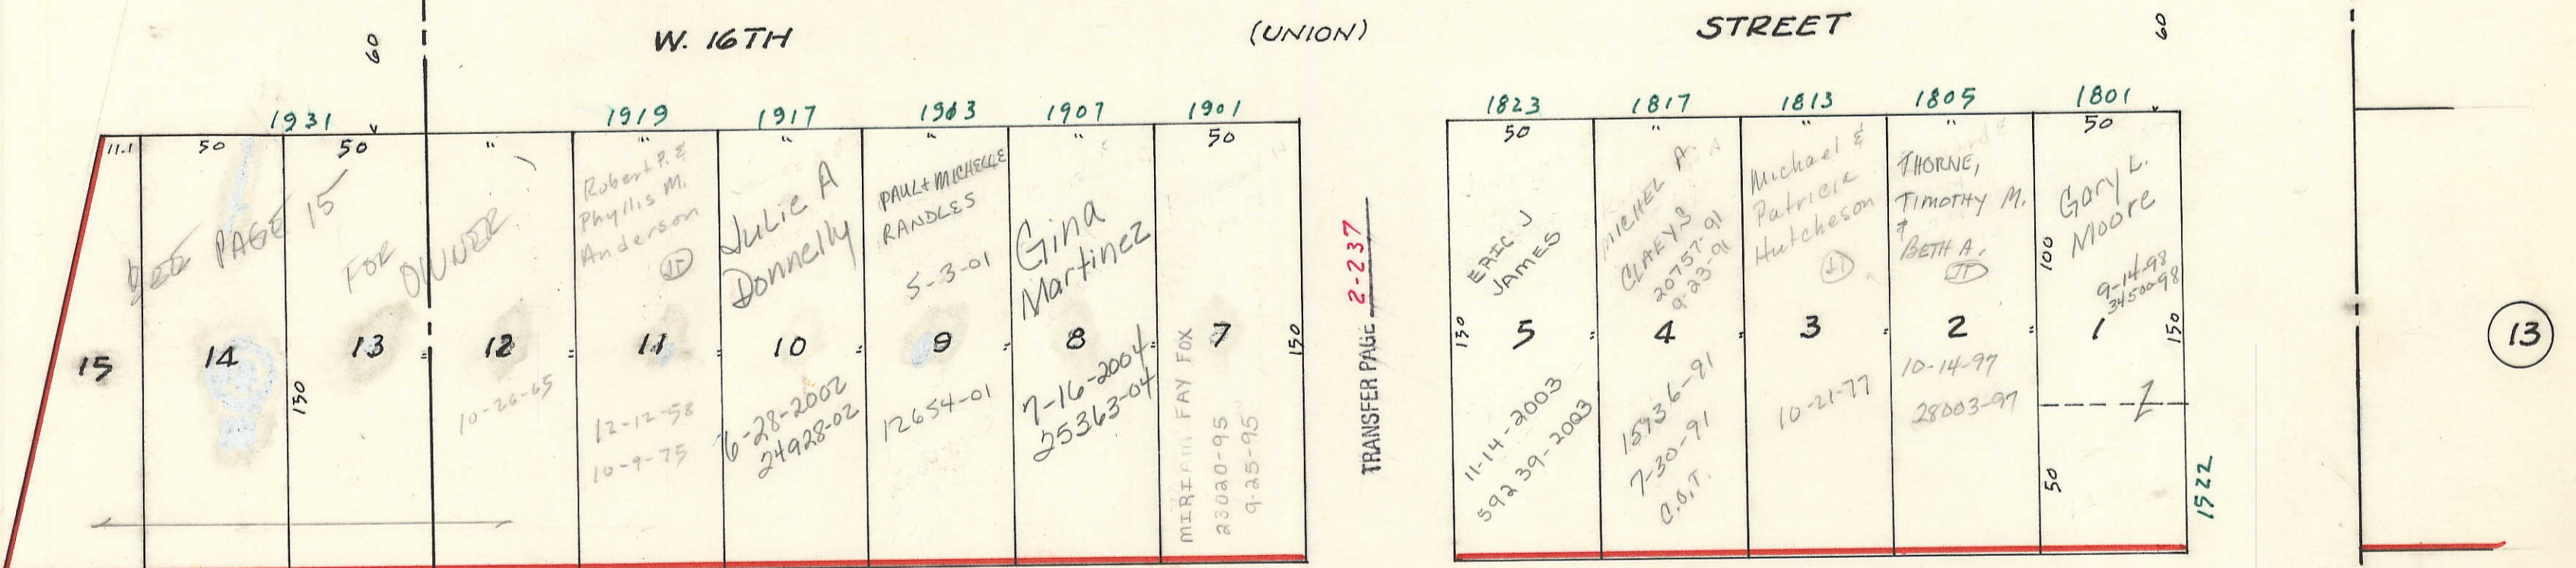 W. 16TH (UNION) STREET
60
60
1931
1919
1917
1903
1907
1901
1823
1817
1813
1805
1801
11.1
50
50
"
"
"
"
"
50
50
"
"
"
50
SEE PAGE 15
FOR
OWNER
15
14
130
13
12
10-26-65
Robert P. &
Phyllis M.
Anderson
JT
11
12-12-58
10-9-75
Julie A
Donnelly
10
6-28-2002
24928-02
PAUL + MICHELLE
RANDLES
5-3-01
9
12654-01
Gina
Martinez
8
7-16-2004
25363-04
7
150
MIRIAM FAY FOX
23020-95
9-25-95
TRANSFER PAGE 2-237
ERIC J
JAMES
130
5
11-14-2003
59239-2003
MICHEL A.
CLAEYS
20757-91
9-23-91
4
15936-91
7-30-91
C.O.T.
Michael &
Patricia
Hutcheson
JT
3
10-21-77
THORNE,
TIMOTHY M.
&
BETH A.
JT
2
10-14-97
28003-97
Gary L.
Moore
100
9-14-98
34500-98
1
150
50
1522
13